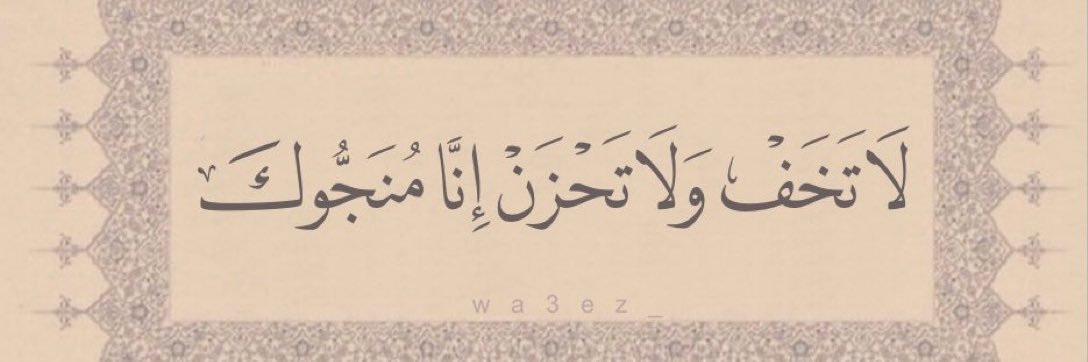 لَا تَخَفْ وَلَا تَحْزَنْ إِنَّا مُنَجُّوكَ
wa3ez_